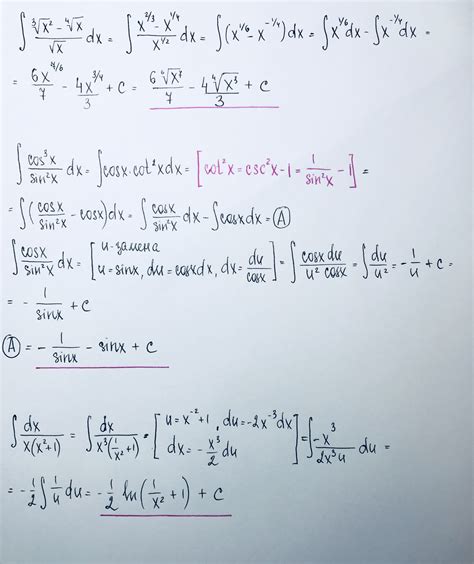 ∫ (∛x² - ∜x)/√x dx = ∫ (x^(2/3) - x^(1/4))/x^(1/2) dx = ∫(x^(1/6) - x^(-1/4))dx = ∫x^(1/6)dx - ∫x^(-1/4)dx =
= 6x^(7/6)/7 - 4x^(3/4)/3 + c = 6 ⁶√x⁷/7 - 4 ⁴√x³/3 + c
∫ cos³x/sin²x dx = ∫cosx·cot²x dx = [cot²x = csc²x - 1 = 1/sin²x - 1] =
= ∫(cosx/sin²x - cosx)dx = ∫ cosx/sin²x dx - ∫cosx dx = Ⓐ
∫ cosx/sin²x dx = [u-замена u = sinx, du = cosx dx, dx = du/cosx] = ∫ cosx du/(u² cosx) = ∫ du/u² = - 1/u + c =
= - 1/sinx + c
Ⓐ = - 1/sinx - sinx + c
∫ dx/(x(x²+1)) = ∫ dx/(x³(1/x²+1)) = [u = x⁻²+1, du = -2x⁻³dx dx = - x³/2 du] = ∫ -x³/(2x³u) du =
= - 1/2 ∫ 1/u du = - 1/2 ln(1/x² + 1) + c